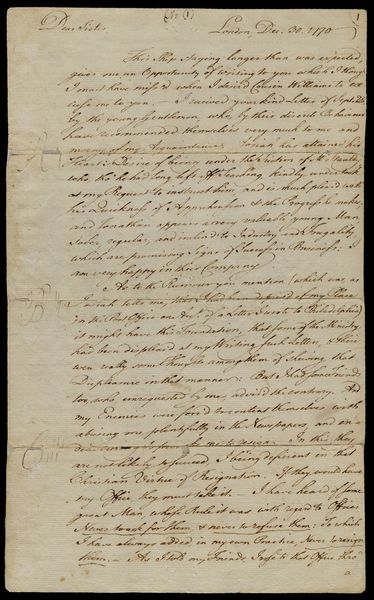 (No. 1)
1
Dear Sister
London, Dec. 30. 1770
This Ship staying longer than was expected,
gives me an Opportunity of writing to you which I thought
I must have miss'd when I desir'd Cousin Williams to ex
cuse me to you. — I received your kind Letter of Sept. 25
by the young Gentlemen, who, by their discreet Behaviour
have recommended themselves very much to me and
many of my Acquaintance. Josiah has attained his
Heart's Desire of being under the Tuition of Mr Stanley,
who tho' he had long left off Teaching, kindly undertook
at my Request to instruct him, and is much pleased with
his Quickness of Apprehension & the Progress he makes;
and Jonathan appears a very valuable young Man,
sober, regular, and inclin'd to Industry and Frugality,
which are promising Signs of Success in Business: I
am very happy in their Company.
As to the Rumour you mention (which was, as
Josiah tells me, that I had been deprived of my Place
in the Post Office on Acct of a Letter I wrote to Philadelphia)
it might have this Foundation, that some of the Ministry
had been displeas'd at my Writing such Letters, & there
were really some Thoughts among them of shewing that
Displeasure in that manner: But I had some Friends
too, who, unrequested by me, advis'd the contrary. And
my Enemies were forc'd to content themselves with
abusing me plentifully in the Newspapers, and en-
to resign. In this they
are not likely to succeed, I being deficient in that
Christian Virtue of Resignation. If they would have
my Office, they must take it — I have heard of some
great Man, whose Rule it was with regard to Offices,
Never to ask for them, & never to refuse them: To which
I have always added in my own Practice, Never to resign
them. — As I told my Friends, I rose to that Office thro'
a